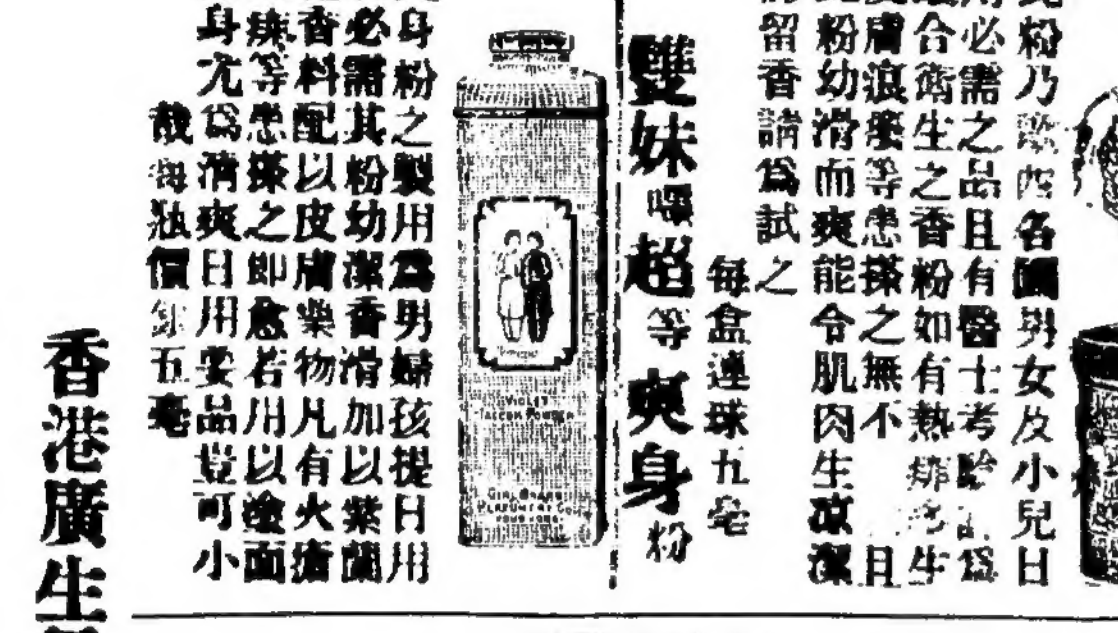 粉乃 西名國男女及小兒日
必需之品且有醫士考驗 為
合衛生之香粉如有熱痱 生
膚痕癢等患搽之無不 且
粉幼滑而爽能令肌肉生凉潔
留香請為試之
每盒連球五毫
雙妹嚜超等爽身粉
VIOLET
TALCUM POWDER
身粉之製用為男婦孩提日用
必需其粉幼潔香滑加以紫蘭
香料配以皮膚藥物凡有火瘡
痱等患搽之即愈若用以塗面
身尤為清爽日用妥品豈可小
哉每 價銀五毫
香港廣生